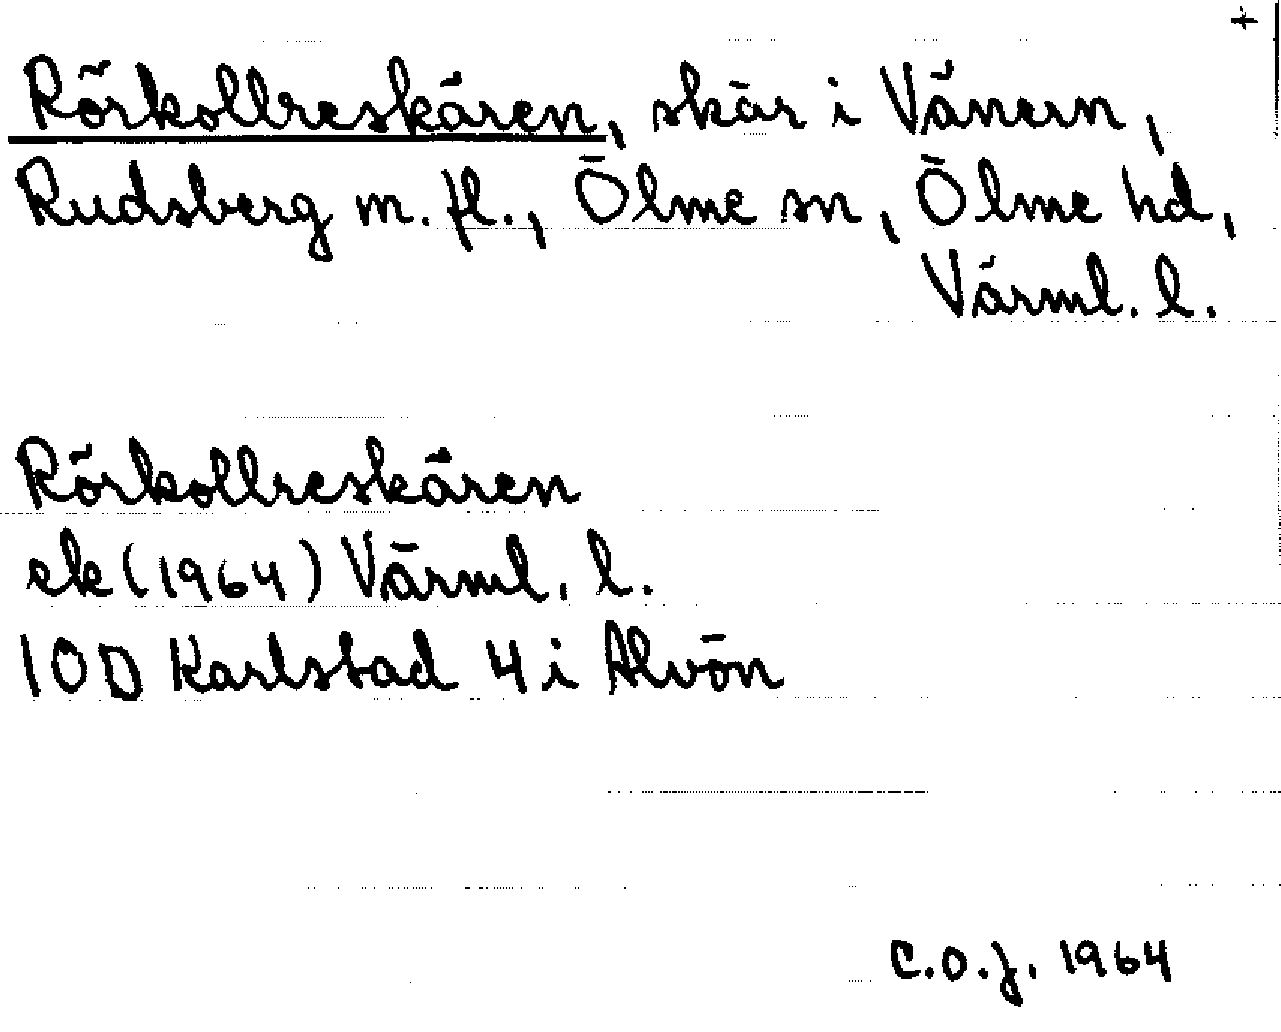 +
Rörkollreskären, skär i Vänern,
Rudsberg m. fl., Ölme sn, Ölme hd,
Värml. l.
Rörkollreskären
ek (1964) Värml. l.
10D Karlstad 4 i Alvön
C.O.J. 1964